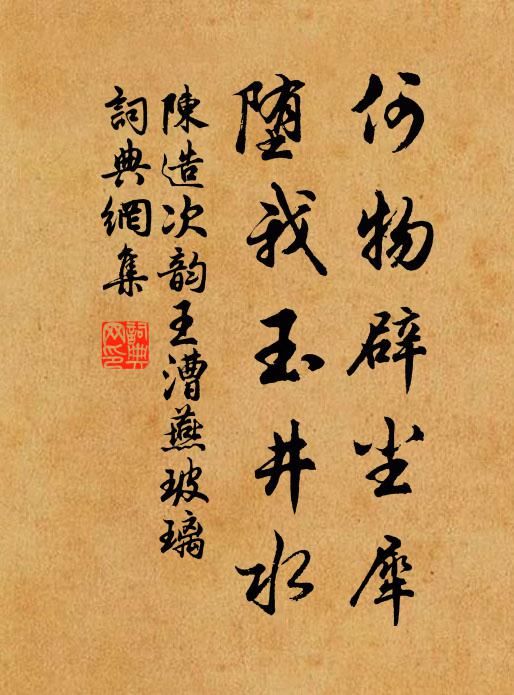 何物辟尘犀
堕我玉井水
陳造次韵王漕燕玻璃
詞典網集
詞典网印